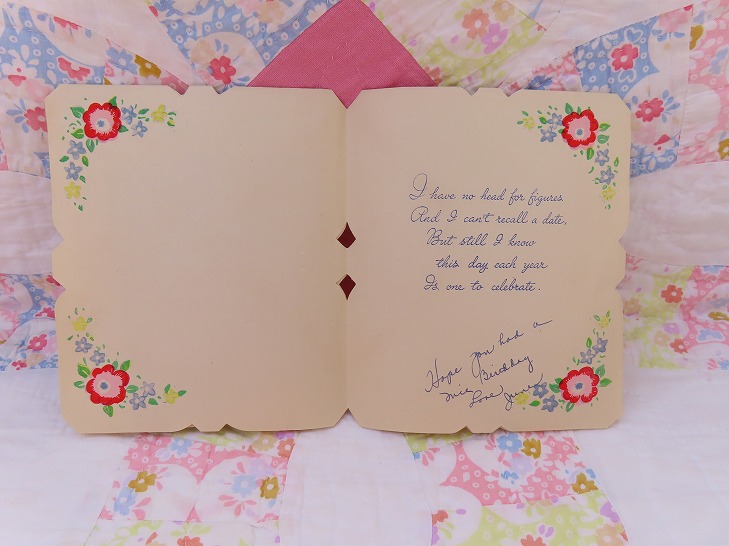 I have no head for figures
And I can't recall a date,
But still I know
this day each year
Is one to celebrate.
Hope you had a
nice Birthday
Love June